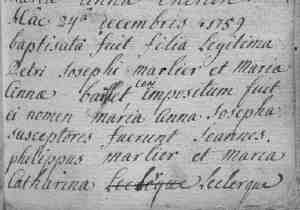 maria anna
hac 29a decembris 1759
baptisata fuit filia legitima
petri Josephi marlier et maria
annæ basset cui impositum fuit
ei nomen maria anna Josepha
susceptores fuerunt Joannes
philippus marlier et maria
Catharina Leclerque Leclerque